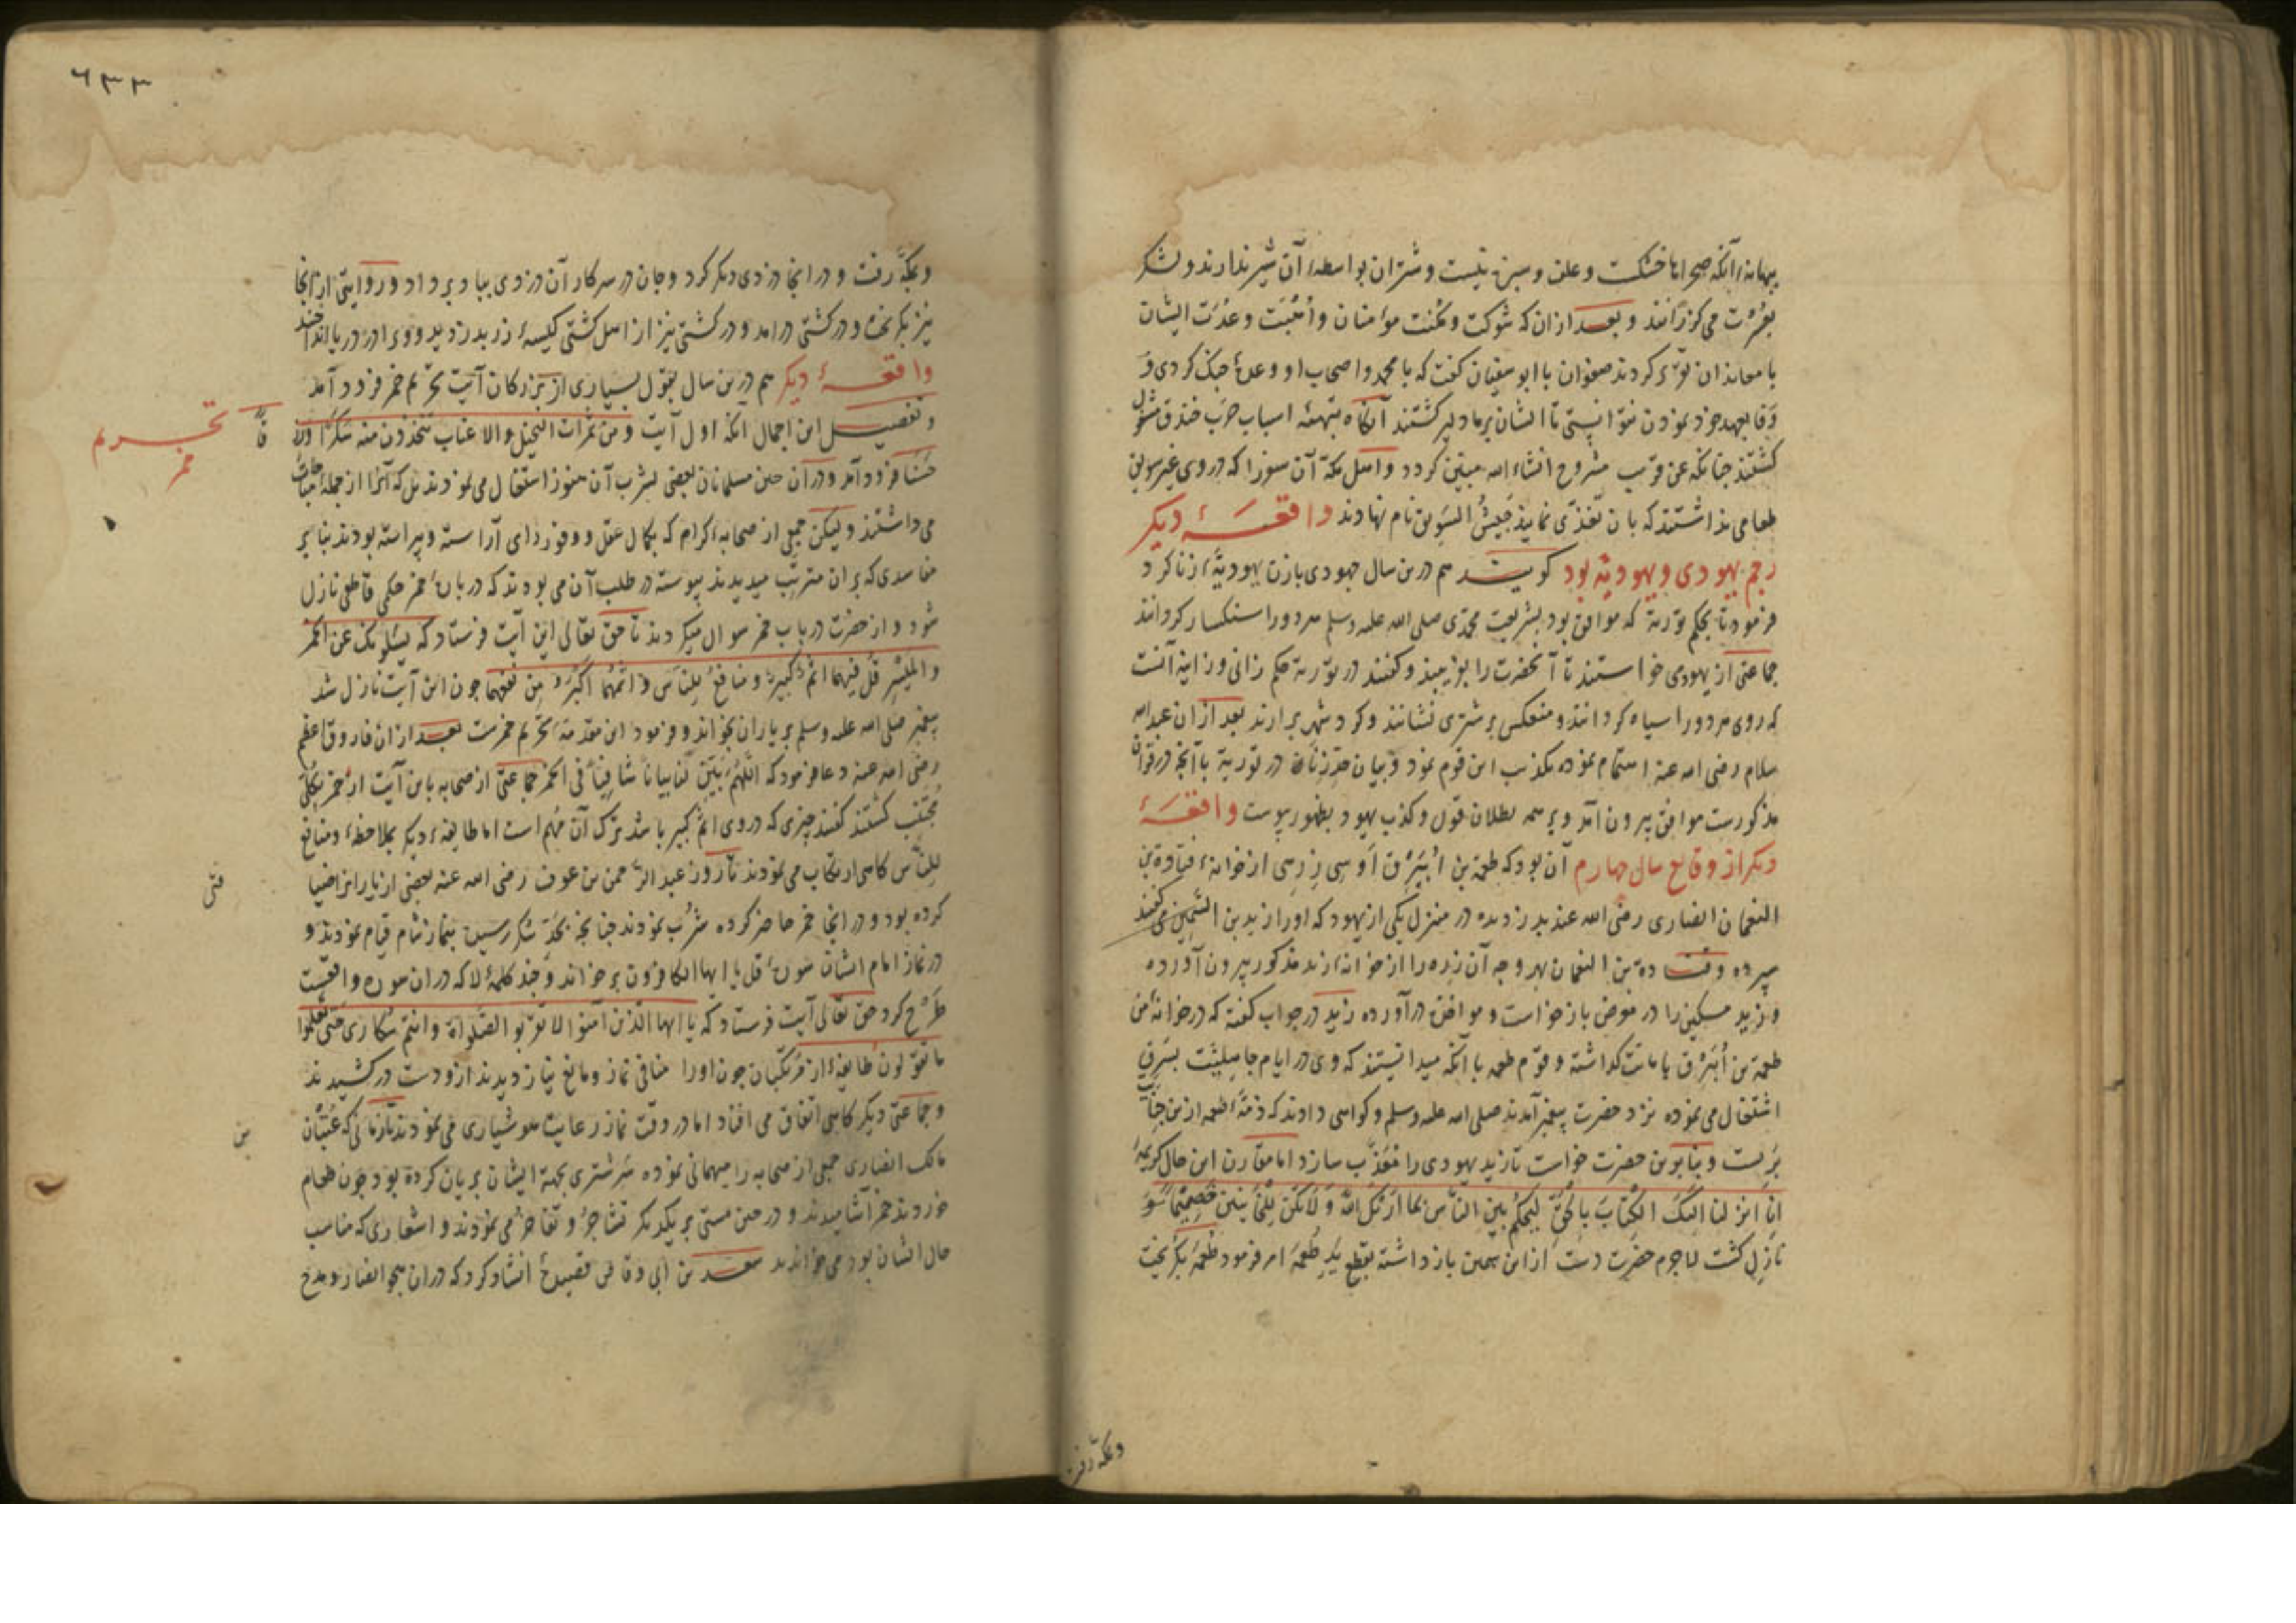 بهانهٔ آنکه صحراها خشکست و علف و سبزه نیست و شتران بواسطهٔ آن شیر ندارند و لشکر
بعُسرت می کزرانند و بعد ازان که شوکت و مکنت مؤمنان و اُهْبَت و عدّت ایشان
با معاندان تقریر کردند صفوان با ابو سفیان کفت که با محمد و اصحاب او وعدهٔ جنک کردی و
وفا بعهد خود نمودن نتوانستی تا ایشان بر ما دلیر کشتند آنکاه بتهیهٔ اسباب حرب خندق مشغول
کشتند چنانکه عن قریب مشروح انشاء الله مبیّن کردد و اهل مکه آن سفر را که دروی غیر سویق
طعامی نداشتند که بآن تغذّی نمایند جَیشُ السَویق نام نهادند واقعهٔ دیکر
رجم یهودی و یهودیّه بود کویند هم درین سال جهودی بازن یهودیّهٔ زنا کرد
فرمود تا بحکم توریة که موافق بود بشریعت محمدی صلی الله علیه وسلم هر دو را سنکسار کردانند
جماعتی از یهود می خواستند تا آنحضرت را بفریبند و کفتند در توریة حکم زانی و زانیه آنست
که روی هر دو را سیاه کردانند و منعکس بر شتری نشانند و کرد شهر برآرند بعد ازان عبد الله
سلام رضی الله عنه اهتمام نموده تکذیب این قوم نمود و بیان حدّ زناة در توریة با آنچه در قرآن
مذکورست موافق بیرون آمد و بر همه بطلان قول و کذب یهود بظهور پیوست واقعهٔ
دیکر از وقایع سال چهارم آن بود که طعمة بن اُبَیْرِق اَوسی زرهی از خانهٔ قتادة بن
النعمان انصاری رضی الله عنه بدزدیده در منزل یکی از یهود که او را زید بن السمین می کفتند
سپرده و قتادة بن النعمان بهر وجه آن زره را از خانهٔ زید مذکور بیرون آورده
و زید مسکین را در معرض بازخواست و موافقت درآورده زید در جواب کفته که در خانهٔ من
طعمة بن اُبَیْرِق بامانت کذاشته و قوم طعمه با آنکه میدانستند که وی در ایام جاهلیت بسرقه
اشتغال می نموده نزد حضرت پیغمبر آمدند صلی الله علیه وسلم و کواهی دادند که ذمّهٔ طعمه ازین خیانت
بَریست و بنابرین حضرت خواست تا زید یهودی را معذّب سازد اما مقارن این حال کریمهٔ
انّا انزلنا الیک الکتابَ بالحقّ لیحکم بین الناس بما اَرٰیکَ اللّه وَ لاَتکن للْخائنین خصیمًا
نازل کشت لاجرم حضرت دست ازان مهم بازداشته بقطع یدِ طُعْمه امر فرمود طُعْمه بکریخت
وبمکّه رفت
٦٣٣
وبمکّه رفت و در انجا دزدی دیکر کرد و جان در سر کار آن دزدی بباد برداد و روایتی از انجا
نیز بکریخت و در کشتی درآمد و در کشتی نیز از اهل کشتی کیسهٔ زر بدزدید و ویرا در دریا انداختند
واقعهٔ دیکر هم درین سال بقول بسیاری از بزرکان آیت تحریم خمر فرود آمد
تحریم خمر
و تفصیل این اجمال آنکه اول آیت و من ثمرات النخیل و الاعناب تتخذون منه سَکَرًا و رزقًا
حَسَنًا فرود آمد و در آن حین مسلمانان بعضی بشرب آن هنوز اشتغال می نمودند بل که آنرا از جمله مباحات
می داشتند و لیکن جمعی از صحابه کرام که بکمال عقل و وفور دای آراسته و پیراسته بودند بنا بر
مفاسدی که بر آن مترتّب میدیدند پیوسته در طلب آن می بودند که در بارهٔ خمر حکمی قاطع نازل
شود و از حضرت در باب خمر سوال میکردند تا حق تعالی این آیت فرستاد که یسئلونک عن الخمر
و المَیْسِر قُل فیهما اثمٌ کبیرٌ و منافعُ لِلناس و اثمُهُما اکبرُ مِن نفعهما چون این آیت نازل شد
پیغمبر صلی الله علیه وسلم بر یاران بخواند و فرمود این مقدمهٔ تحریم خمرست بعد ازان فاروق اعظم
رضی الله عنه دعا فرمود که اللّهُمّ بیّن لنا بیانًا شافیًا فی الخمر جماعتی از صحابه باین آیت از خمر بکلّی
مُجتنِب کشتند کفتند چیزی که دروی اثم کبیر باشد ترک آن مُهم است اما طایفهٔ دیکر بملاحظهٔ و منافع
للنّاس کاهی ارتکاب می نمودند تا روزی عبد الرّحمن بن عوف رضی الله عنه بعضی از یاران ضیافت
کرده بود و در انجا خمر حاضر کرده شُرب نمودند چنانچه بحدّ سکر رسیده بنماز شام قیام نمودند و
در نماز امام ایشان سورهٔ قل یا ایها الکافرون برخواند و چند کلمهٔ لا که در ان سوره واقعست
طَرْح کرد حق تعالی آیت فرستاد که یا ایها الذین آمنوا لا تقربوا الصّلواة و انتم سُکاریٰ حتی تعلموا
ما تقولون طایفهٔ از مرتکبان چون او را منافی نماز و مانع نیاز دیدند ازو دست درکشیدند
و جماعتی دیکر کاهی اتفاق می افتاد اما در وقت نماز رعایت هوشیاری می نمودند تا زمانی که عتبان
بن
مالک انصاری جمعی از صحابه را میهمانی نموده سَر شتری بجهة ایشان بریان کرده بود چون طعام
خوردند خمر آشامیدند و در حین مستی بر یکدیکر تشاجُر و تفاخر می نمودند و اشعاری که مناسب
حال ایشان بود می خواندند سعد بن ابی وقاص قصیدهٔ انشاد کرد که در ان هجو انصار و مدح